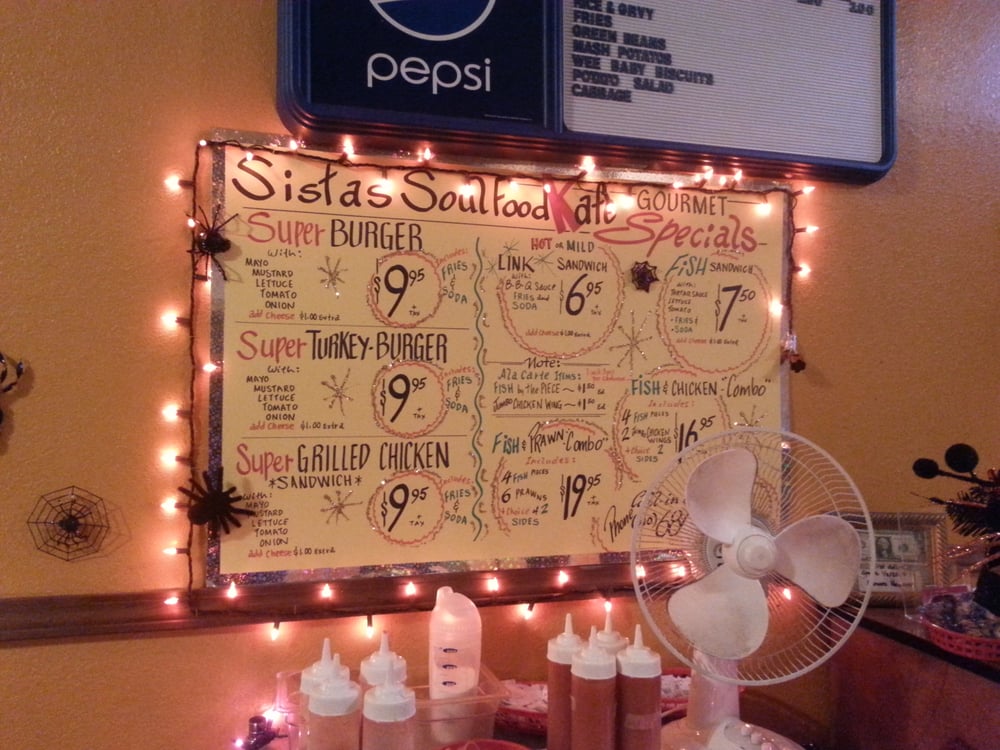 pepsi
RICE & GRVY
FRIES
GREEN BEANS
MASH POTATOS
WEE BABY BISCUITS
POTATO SALAD
CABBAGE
Sistas Soulfood Kafe GOURMET
Specials
Super BURGER
With:
MAYO
MUSTARD
LETTUCE
TOMATO
ONION
add Cheese $1.00 Extra
$9.95
+ TAX
Includes:
FRIES
&
SODA
Super TURKEY-BURGER
With:
MAYO
MUSTARD
LETTUCE
TOMATO
ONION
add Cheese $1.00 Extra
$9.95
+ TAX
Includes:
FRIES
&
SODA
Super GRILLED CHICKEN
*SANDWICH*
With:
MAYO
MUSTARD
LETTUCE
TOMATO
ONION
add Cheese $1.00 Extra
$9.95
+ TAX
Includes:
FRIES
&
SODA
HOT or MILD
LINK SANDWICH
With:
B-B-Q SAUCE
FRIES and
SODA
$6.95
+ TAX
add Cheese $1.00 Extra
FISH SANDWICH
With:
TARTAR SAUCE
LETTUCE
TOMATO
+ FRIES &
SODA
$7.50
+ TAX
add Cheese $1.00 Extra
Note:
Ala Carte Items:
FISH by the PIECE ~ $1.50 Ea
Jumbo CHICKEN WING ~ $1.50 Ea
FISH & PRAWN "Combo"
Includes:
4 FISH PIECES
6 PRAWNS
+ Choice of 2
SIDES
$19.95
+ TAX
FISH & CHICKEN "Combo"
Includes:
4 FISH PIECES
2 Jumbo CHICKEN
WINGS
+ Choice 2
SIDES
$16.95
Call-in
Phone